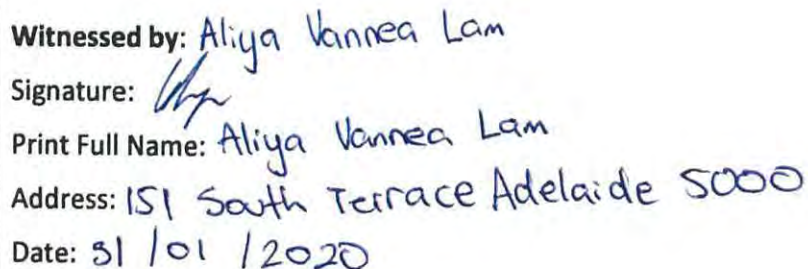 Witnessed by: Aliya Vannea Lam
Signature:
Print Full Name: Aliya Vannea Lam
Address: 151 South Terrace Adelaide 5000
Date: 31 /01 /2020